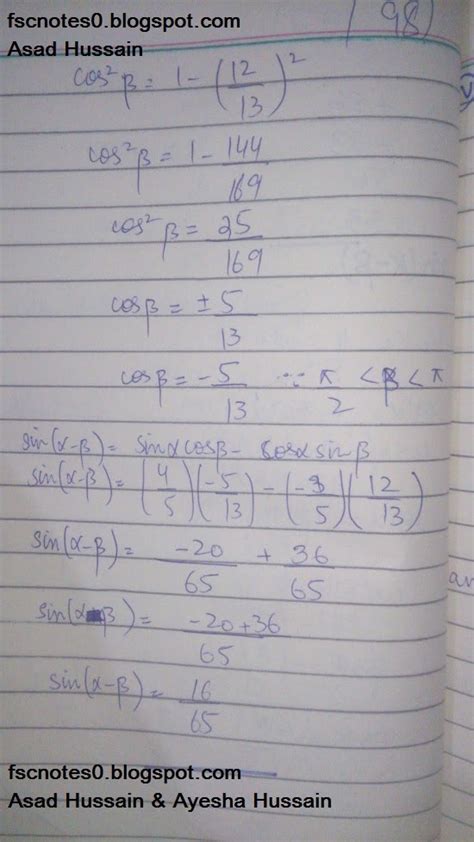 fscnotes0.blogspot.com
Asad Hussain
98)
cos²β = 1 - (12/13)²
cos²β = 1 - 144/169
cos²β = 25/169
cosβ = ± 5/13
cosβ = -5/13 ∵ π/2 < β < π
sin(α-β) = sinαcosβ - cosαsinβ
sin(α-β) = (4/5)(-5/13) - (-3/5)(12/13)
sin(α-β) = -20/65 + 36/65
sin(α-β) = -20+36/65
sin(α-β) = 16/65
fscnotes0.blogspot.com
Asad Hussain & Ayesha Hussain